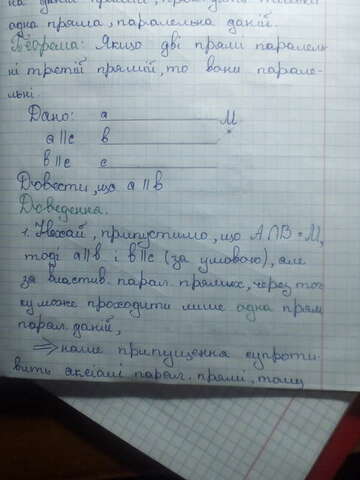 на даній прямій, проходить тільки
одна пряма, паралельна даній.
Теорема: Якщо дві прямі паралель
ні третій прямій, то вони парале-
льні.
Дано: a M
a||c в
в||c c
Довести, що a||в
Доведення.
1. Нехай, припустимо, що A∩B = M,
тоді a||в і в||c (за умовою), але
за властив. парал. прямих, через точ
ку може проходити лише одна прям
парал. даній,
⇒ наше припущення супроти-
вить аксіомі парал. прямі, тому